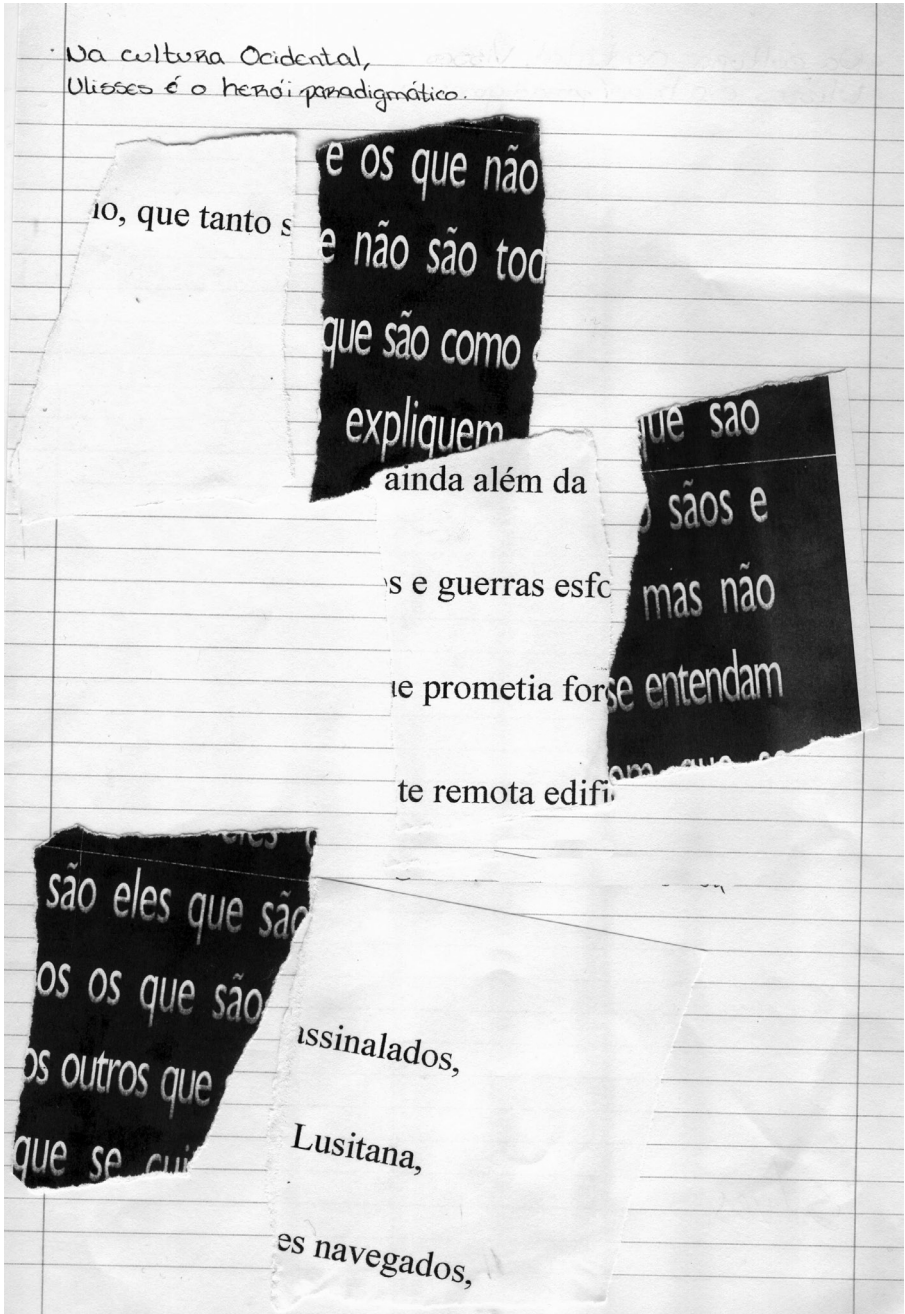 Na cultura Ocidental,
Ulisses é o herói paradigmático.
io, que tanto s
e os que não
e não são tod
que são como
expliquem
ainda além da
s e guerras esfo
ue prometia for
te remota edifi
que são
sãos e
mas não
se entendam
eles
são eles que são
os os que são
os outros que
que se cui
assinalados,
Lusitana,
es navegados,